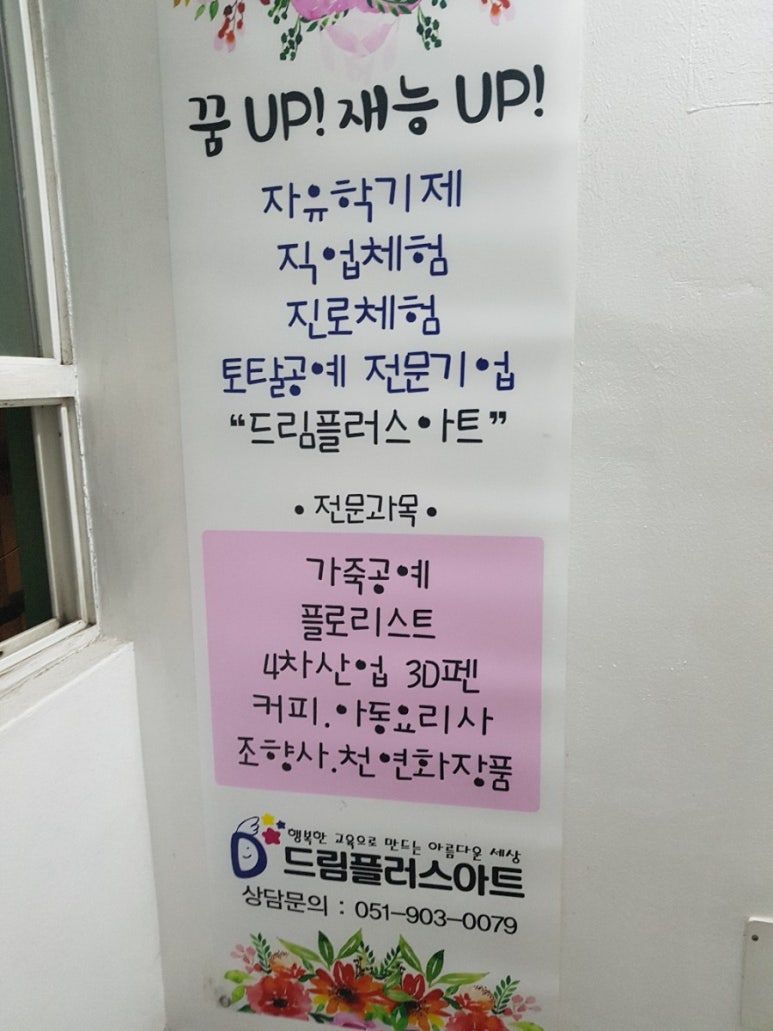 꿈 UP! 재능 UP!
자유학기제
직업체험
진로체험
토탈공예 전문기업
“드림플러스아트”
• 전문과목 •
가죽공예
플로리스트
4차산업 3D펜
커피.아동요리사
조향사.천연화장품
행복한 교육으로 만드는 아름다운 세상
드림플러스아트
상담문의 : 051-903-0079